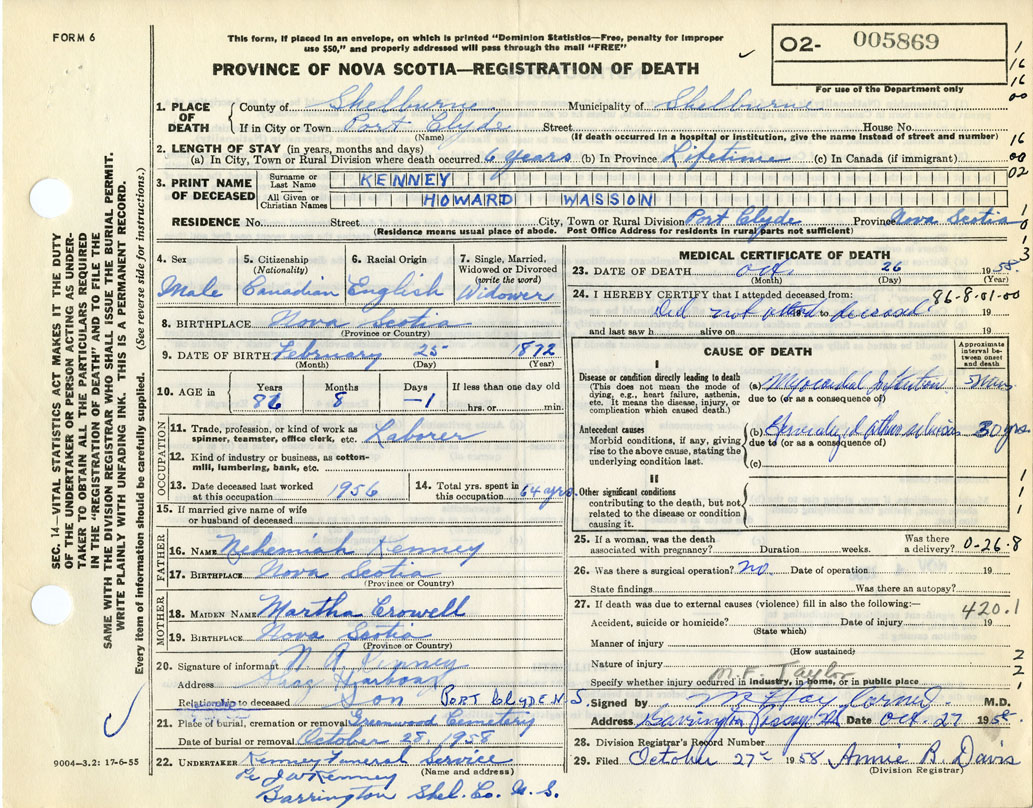 FORM 6
This form, if placed in an envelope, on which is printed "Dominion Statistics—Free, penalty for improper
use $50," and properly addressed will pass through the mail "FREE"
O2- 005869
For use of the Department only
PROVINCE OF NOVA SCOTIA—REGISTRATION OF DEATH
1. PLACE OF DEATH
County of Shelburne Municipality of Shelburne
If in City or Town Port Clyde Street House No.
(Name) (If death occurred in a hospital or institution, give the name instead of street and number)
2. LENGTH OF STAY (in years, months and days)
(a) In City, Town or Rural Division where death occurred 6 years (b) In Province Lifetime (c) In Canada (if immigrant)
3. PRINT NAME OF DECEASED
Surname or Last Name KENNEY
All Given or Christian Names HOWARD WASSON
RESIDENCE No. Street City, Town or Rural Division Port Clyde Province Nova Scotia
(Residence means usual place of abode. Post Office Address for residents in rural parts not sufficient)
1
16
16
00
16
00
02
1
0
1
3
4. Sex
Male
5. Citizenship (Nationality)
Canadian
6. Racial Origin
English
7. Single, Married, Widowed or Divorced (write the word)
Widower
8. BIRTHPLACE Nova Scotia
(Province or Country)
9. DATE OF BIRTH February 25 1872
(Month) (Day) (Year)
10. AGE in
Years 86
Months 8
Days —1
If less than one day old
hrs. or min.
OCCUPATION
11. Trade, profession, or kind of work as spinner, teamster, office clerk, etc. Laborer
12. Kind of industry or business, as cotton-mill, lumbering, bank, etc.
13. Date deceased last worked at this occupation 1956
14. Total yrs. spent in this occupation 64 yrs.
15. If married give name of wife or husband of deceased
FATHER
16. NAME Nehemiah Kenney
17. BIRTHPLACE Nova Scotia
(Province or Country)
MOTHER
18. MAIDEN NAME Martha Crowell
19. BIRTHPLACE Nova Scotia
(Province or Country)
20. Signature of informant N A Kenney
Address Harbour
Relationship to deceased Son PORT CLYDE N S.
21. Place of burial, cremation or removal Greenwood Cemetery
Date of burial or removal October 28, 1958
22. UNDERTAKER Kenney Funeral Service
(Name and address)
Per J W Kenney
Barrington Shel. Co. N. S.
MEDICAL CERTIFICATE OF DEATH
23. DATE OF DEATH Oct. 26 1958
(Month) (Day) (Year)
24. I HEREBY CERTIFY that I attended deceased from: 86-8-01-00
Did not attend deceased 19 to 19
and last saw h alive on 19
CAUSE OF DEATH
Approximate interval between onset and death
I
Disease or condition directly leading to death
(This does not mean the mode of dying, e.g., heart failure, asthenia, etc. It means the disease, injury, or complication which caused death.)
(a) Myocardial 5 mins
due to (or as a consequence of)
Antecedent causes
Morbid conditions, if any, giving rise to the above cause, stating the underlying condition last.
(b) Generalized 30 yrs
due to (or as a consequence of)
(c)
II
Other significant conditions
contributing to the death, but not related to the disease or condition causing it.
1
1
1
25. If a woman, was the death associated with pregnancy? Duration weeks. Was there a delivery? 0-26-8
26. Was there a surgical operation? no Date of operation 19
State findings Was there an autopsy?
27. If death was due to external causes (violence) fill in also the following:—
420.1
Accident, suicide or homicide? Date of injury 19
(State which)
Manner of injury
(How sustained)
Nature of injury
M. F. Taylor
Specify whether injury occurred in industry, in home, or in public place
2
2
1
Signed by M F Taylor M.D.
Address Barrington Passage NS Date Oct. 27 1958
28. Division Registrar's Record Number
29. Filed October 27 1958 Annie B. Davis
(Division Registrar)
SEC. 14—VITAL STATISTICS ACT MAKES IT THE DUTY
OF THE UNDERTAKER OR PERSON ACTING AS UNDER-
TAKER TO OBTAIN ALL THE PARTICULARS REQUIRED
IN THE "REGISTRATION OF DEATH" AND TO FILE THE
SAME WITH THE DIVISION REGISTRAR WHO SHALL ISSUE THE BURIAL PERMIT.
WRITE PLAINLY WITH UNFADING INK. THIS IS A PERMANENT RECORD.
Every item of information should be carefully supplied. (See reverse side for instructions.)
9004—3.2: 17-6-55